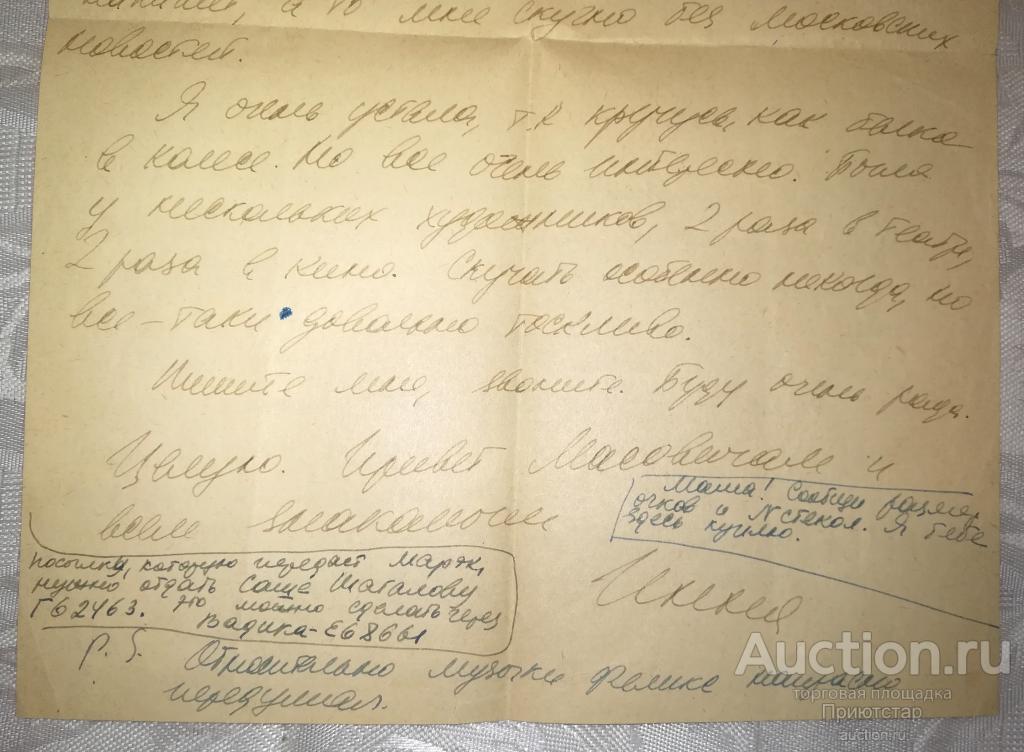 а то мне скучно без московских
новостей.
Я очень устала, т.к кручусь, как белка
в колесе. Но все очень интересно. Была
у нескольких художников, 2 раза в театре,
2 раза в кино. Скучать особенно некогда, но
все-таки довольно тоскливо.
Пишите мне, звоните. Буду очень рада.
Целую. Привет Масовичам и
всем знакомым
Маша! Сообщи размер
очков и № стекол. Я тебе
здесь куплю.
посылку, которую передаст Марэк,
нужно отдать Саше Шаталову
Г62463. Это можно сделать через
Вадика-Е68661
P.S. Относительно музыки Феликс напрасно
передумал.
Auction.ru
торговая площадка
Приютстар
auction.ru